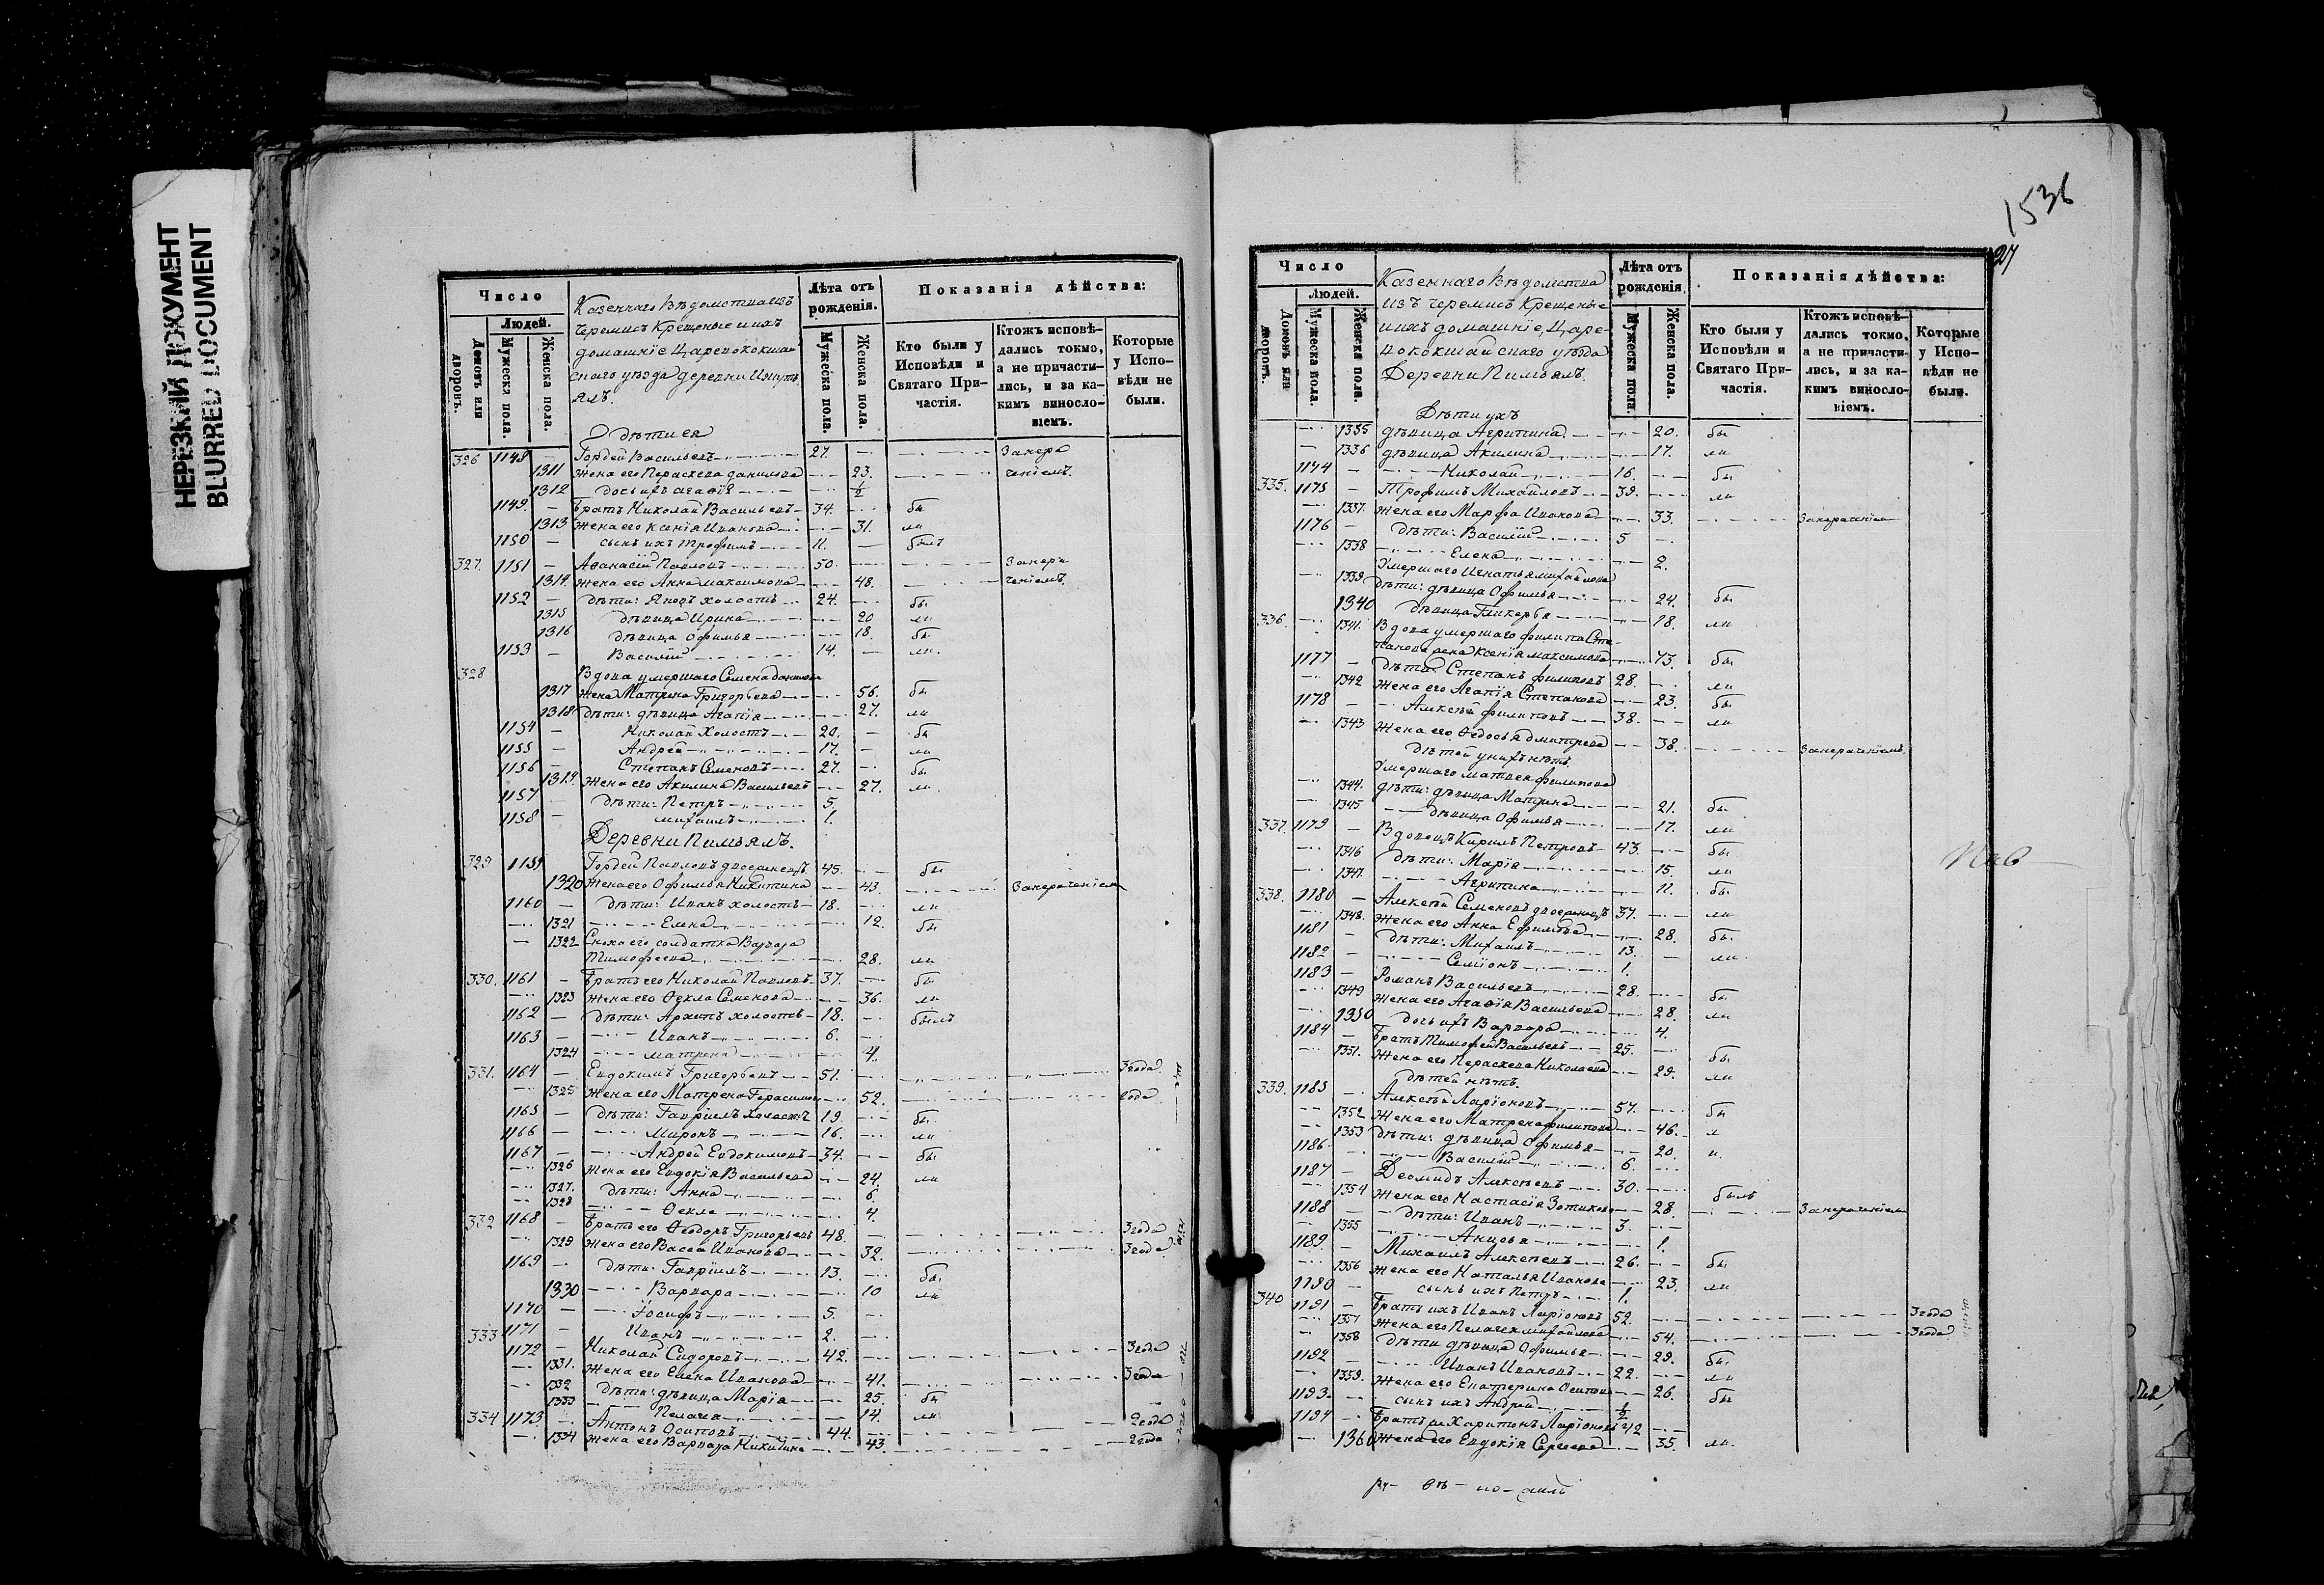 НЕРЕЗКИЙ ДОКУМЕНТ
BLURRED DOCUMENT
Число
Людей.
Домовъ или дворовъ.
Мужеска пола.
Женска пола.
Казеннаго Вѣдомства изъ
черемисъ Крещеные и ихъ
домашніе Царевококшай
скаго уѣзда деревни
Лѣта отъ рожденія.
Мужеска пола.
Женска пола.
Показанія дѣйства:
Кто были у Исповѣди и Святаго Причастія.
Ктожъ исповѣдались токмо, а не причастились, и за какимъ винословіемъ.
Которые у Исповѣди не были.
дѣти ея
326 1148 — Гордей Васильевъ 27 — Занера
1311 жена его Пераскева Данилова 23. ченіемъ.
1312 дочь ихъ Агафія ½
1149. — Братъ Николай Васильевъ 34. бы
1313 жена его Ксенія Иванова 31. ли
1150 — сынъ ихъ Трофимъ 11. — былъ
327. 1151 — Афанасій Павловъ 50. Занера
1314. жена его Анна Максимова 48. ченіемъ
1152 — дѣти: Яковъ холостъ 24. бы
1315 дѣвица Ирина 20 ли
1316 дѣвица Офимья 18. бы
1153 — Василій 14. — ли.
328 Вдова умершаго Семена Данилова
1317 жена Матрена Григорьева 56. бы
1318 дѣти: дѣвица Агапія 27. ли
1154 — Николай холостъ 20. — бы
1155 — Андрей 17. — ли
1156 — Степанъ Семеновъ 27. — бы
1319. жена его Акилина Васильева 27. ли
1157 — дѣти: Петръ 5.
1158 — Михаилъ 1.
Деревни Пимъялъ.
329 1159 Гордей Павловъ двоеженецъ 45. бы
1320 жена его Офимья Никитина 43. Занераченіем
1160 — дѣти: Иванъ холостъ 18. ли
1321 Елена 12. бы
1322 Сноха его солдатка Варвара
Тимофеева 28. ли
330. 1161 — Братъ его Николай Павловъ 37. бы
1323 жена его Ѳекла Семенова 36. ли
1162 — дѣти: Архипъ холостъ 18. былъ
1163 — Иванъ 6.
1324 Матрена 4.
331. 1164 — Евдокимъ Григорьевъ 51. 3 года
1325 жена его Матрена Герасимова 52. года
1165 — дѣти: Гавріилъ холостъ 19. бы
1166 — Миронъ 16. ли
1167 — Андрей Евдокимовъ 34. бы
1326 жена его Евдокія Васильева 24. ли
1327. дѣти: Анна 6.
1328 Ѳекла 4.
332 1168 — Братъ его Ѳеодоръ Григорьевъ 48. 3 года
1329 жена его Васса Иванова 32. 3 года
1169 — дѣти: Гавріилъ 13. бы
1330 Варвара 10 ли
1170 — Іосифъ 5.
1171 — Иванъ 2.
333 1172 — Николай Сидоровъ 42. 3 года
1331. жена его Елена Иванова 41. 3 года
1332 дѣти: дѣвица Марія 25. бы
1333 Пелагея 14. ли
334 1173. Антонъ Осиповъ 44. 2 года
1334 жена его Варвара Никитина 43. 2 года
1536
27
Число
Людей.
Домовъ или дворовъ.
Мужеска пола.
Женска пола.
Казеннаго Вѣдомства
изъ черемисъ Крещеные
и ихъ домашніе, Царе-
вококшайскаго уѣзда
Деревни Пимъялъ.
Лѣта отъ рожденія.
Мужеска пола.
Женска пола.
Показанія дѣйства:
Кто были у Исповѣди и Святаго Причастія.
Ктожъ исповѣдались токмо, а не причастились, и за какимъ винословіемъ.
Которые у Исповѣди не были.
Дѣти ихъ
1335 дѣвица Агрипина 20. бы
1336 дѣвица Акилина 17. ли
1174 — Николай 16. бы
335. 1175 — Трофимъ Михайловъ 39. ли
1337. жена его Марфа Иванова 33. Занераченіем
1176 — дѣти: Василій 5
1338 Елена 2.
Умершаго Игнатья Михайлова
1339. дѣти: дѣвица Офимья 24. бы
1340 дѣвица Гликерья 18. ли
336. 1341. Вдова умершаго Филипа Сте
панова жена Ксенія Максимова 73. бы
1177 — дѣти: Степанъ Филиповъ 28. ли
1342 жена его Агапія Степанова 23. бы
1178 — Алексѣй Филиповъ 38. ли
1343 жена его Ѳедосья Дмитрева 38. Занераченіемъ
дѣтей у нихъ нѣтъ.
Умершаго Матвея Филипова
1344. дѣти: дѣвица Матрена 21. бы
1345 дѣвица Офимья 17. ли
337. 1179 — Вдовецъ Кирилъ Петровъ 43. бы
1346 дѣти: Марія 15. ли
1347. Агрипина 11. бы
338. 1180 — Алексѣй Семеновъ двоеженецъ 37. ли
1348. жена его Анна Ефимова 28. бы
1181 — дѣти: Михаилъ 13. ли
1182 — Семіонъ 1.
1183 — Романъ Васильевъ 28. бы
1349 жена его Агафія Васильева 28. ли
1350 дочь ихъ Варвара 4.
1184 — Братъ Тимофей Васильевъ 25. бы
1351. жена его Пераскева Николаева 29. ли
дѣтей нѣтъ.
339. 1185 — Алексѣй Ларіоновъ 57. бы
1352 жена его Матрена Филипова 46. л
1353 дѣти: дѣвица Офимья 20. и.
1186 Василій 6.
1187 — Деомидъ Алексѣевъ 30. былъ
1354 жена его Настасія Зотикова 28 Занераченіем
1188 — дѣти: Иванъ 3.
1355 1.
1189. — Михаилъ Алексѣевъ 26. бы
1356 жена его Наталья Иванова 23. ли
1190 — сынъ ихъ Петръ 1.
340 1191 — Братъ ихъ Иванъ Ларіоновъ 52. 3 года
1357 жена его Пелагея Михайлова 54. 3 года
1358 дѣти дѣвица Офимья 29. бы
1192 — Иванъ Ивановъ 22. ли
1359. жена его Екатерина Осипова 26. бы
1193. сынъ ихъ Андрей ½
1194 — Братъ Харитонъ Ларіоновъ 42
1360 жена его Евдокія Сергеева 35. ли.